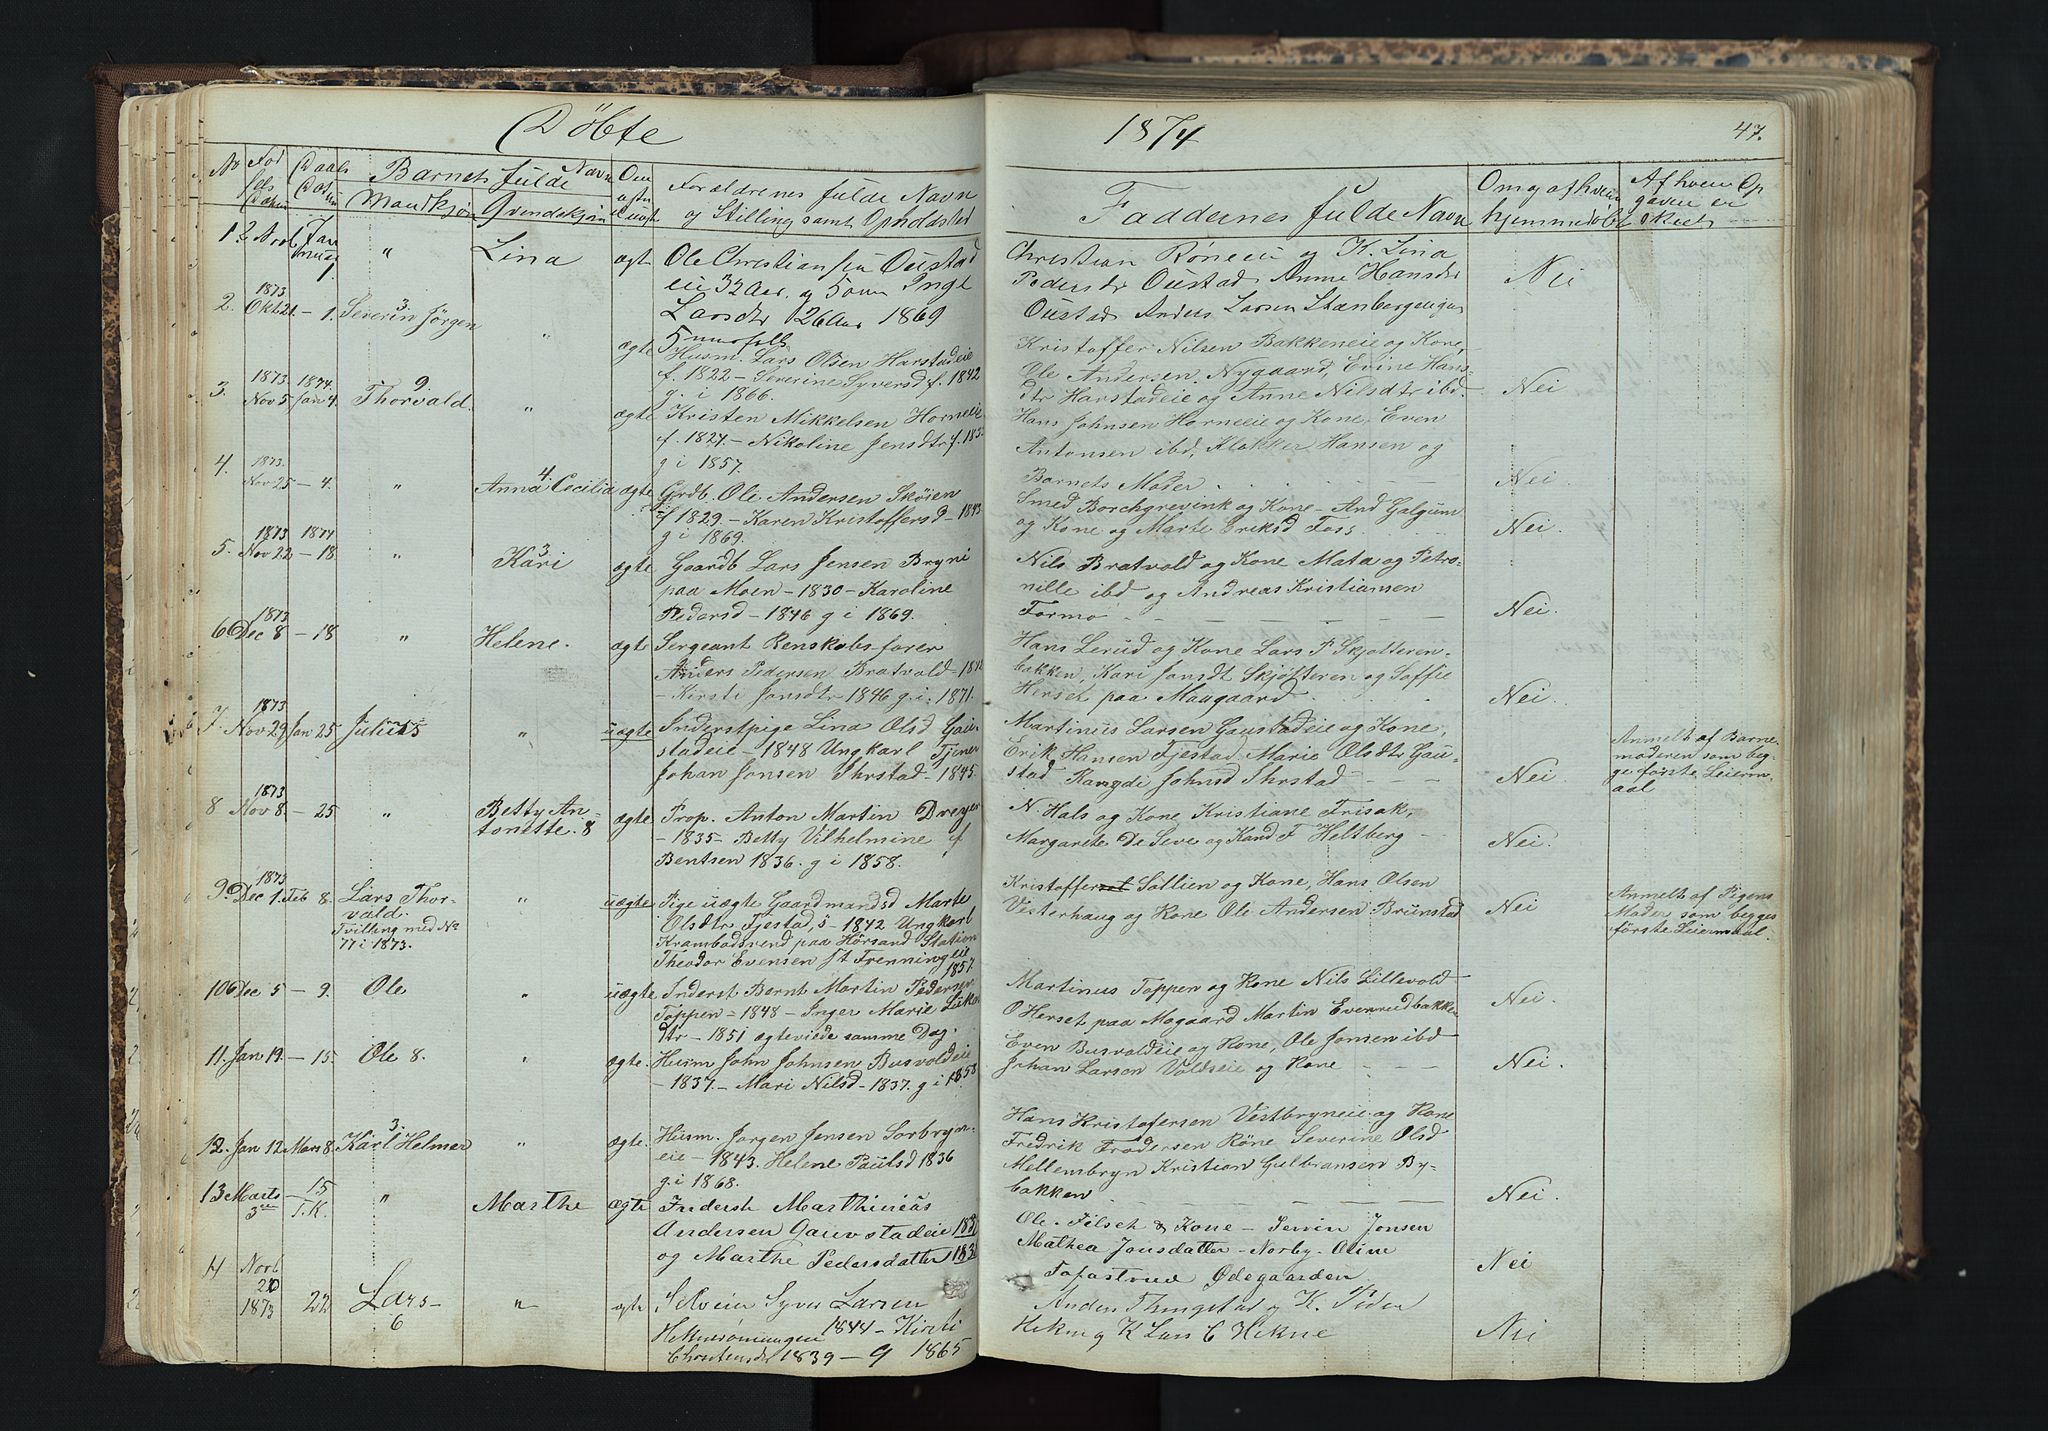 Döbte
1874
47.
No Fød sels Datum Daabs Datum Barnets fulde Navn Mandkjøn Qvendekjøn Om ægte el uægte Forældrenes fulde Navn og Stilling samt Opholdsted Faddernes fulde Navn Om og af hvem hjemmedøbt Af hvem Opgaven er sket
1 2 Novb Januar 1 " Lina ægt Ole Christiansen Oustad
eie 32 Aar, og Inge
Larsdtr 26 Aar 1869
Christian Røneeie og K. Lina
Pedersdtr Oustad Anne Hansdtr
Oustad Anders Larsen
Nei
2. 1873 Okt 21 – 1. Severin Jörgen 3. " ægte
Husm. Lars Olsen Harstadeie
f. 1822 – Severine Syversd f. 1842
g. i 1866.
Kristoffer Nilsen Bakkeneie og Kone,
Ole Andersen Nygaard, Evine Hans-
dtr Harstadeie og Anne Nilsdtr ibd.
Nei
3. 1873. Nov 5 1874. Jan 4. Thorvald. 9. " ægte Kristen Mikkelsen Horneeie
f. 1827. – Nikoline Jensdtr f. 183
g i 1857.
Hans Johnsen Horneeie og Kone, Even
Antonsen ibd, Klokker Hansen og
Barnets Moder
Nei.
4. 1873. Nov 25 – 4. " Anna Cecilia 4. ægte Grdb. Ole Andersen Skøien
f 1829 – Karen Kristoffersd – 1843
g i 1869.
Smed Borchgrevink og Kone – And Galgum
og Kone og Marte Eriksd Foss
Nei.
5. 1873 Nov 22 1874 – 18. " Kari 3. ægte Gaardb Lars Jensen Bryni
paa Moen – 1830 – Karoline
Pedersd – 1846 g i 1869.
Nils Bratvold og Kone Mata og Petro-
nille ibd og Andreas Kristiansen
Formo
Nei.
6 1873 Dec 8 – 18 " Helene. ægte Sergeant Renskabsfører
Anders Pedersen Bratvold – 1842
– Kirsti Jonsdtr – 1846 g. i. 1871.
Hans Lerud og Kone Lars P Skjøtteren-
bakken, Kari Jonsdt Skjøtteren og Soffie
Herset paa Maagaard
Nei.
7. 1873 Nov 29 Jan 25 Julius 5 " uægte Inderstpige Lina Olsd Gau-
stadeie – 1848 Ungkarl Tjener
Johan Jonsen Ihrstad – 1845.
Martinus Larsen Gaustadeie og Kone,
Erik Hansen Fjestad, Marie Olsdtr Gau-
stad Rangdi Johnsd Ihrstad
Nei.
Anmelt af Barne-
moderen som beg-
ge første Leierm-
aal
8 1873 Nov 8. – 25 " Betty An-
tonette. 8 ægte Prop. Anton Martin Dreyer
– 1835 – Betty Vilhelmine f.
Bentsen 1836. g i 1858.
N. Hals og Kone Kristiane Frisak,
Margarete De Seve og Kand F Heltberg
Nei.
9. 1873 Dec 1. Feb 8. Lars Thor-
vald.
Tvilling med No
77 i 1873.
" uægte. Pige uægte Gaardmandsd Marte
Olsdtr Fjestad, 5 – 1842 Ungkarl
Krambodsvend paa Hörsand Station
Theodor Evensen
1857.
Kristoffer Sollien og Kone, Hans Olsen
Vesterhaug og Kone Ole Andersen Brunstad
Nei
Anmelt af Pigens
Moder, som begges
første Leiermaal.
10 Dec 5 – 9. Ole " uægte Inderst Bernt Martin Pedersen
Toppen – 1848 – Inger Marie
dtr – 1851 ægteviede samme Dag.
Martinus Toppen og Kone Nils Lillevold
O Herset paa Mogaard Martin Evenrudbakke
Nei.
11. Jan 19. – 15. Ole 8. " ægte. Husm John Johnsen Busvoldeie
– 1837. – Mari Nilsd – 1837. g i 1858
Even Busvoldeie og Kone, Ole Jonsen ibd
Johan Larsen Voldseie og Kone
Nei.
12. Jan 12 Mars 8. Karl Helmer 3. " ægte. Husm. Jørgen Jensen Sørbryn-
eie – 1843. Helene Paulsd 1836
g. i 1868.
Hans Kristofersen Vestbryneie og Kone
Fredrik Frodersen Röne, Severine Olsd
Mellembryn Kristian Gulbransen By-
bakken
Nei.
13 Marts 3 – 15 T.K. " Marthe ægte Inderst Marthineus
Andersen Gauvstadeie 183
og Marthe Pedersdatter 183
Ole Filset & Kone – Jonsen
Mathea Jonsdatter – Norby – Oline
Ødegaarden
Nei
14 Novb
20
1873 22 Lars
6 " ægte Selveier Syver Larsen
1844 – Kirsti
1839 – g 1865
Anders Thingstad og K. Peder
Hekne og K Lars C Hekne
Nei